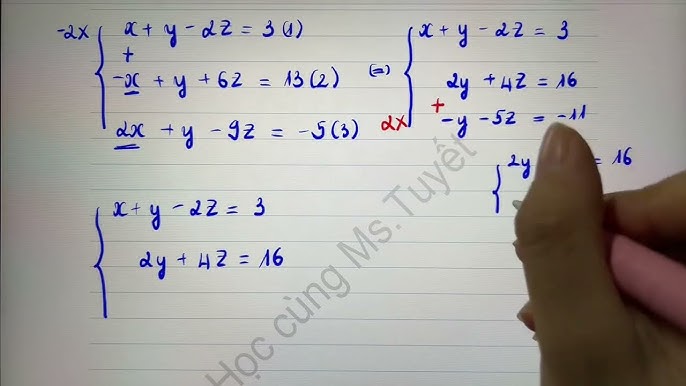 -2x
x + y - 2z = 3 (1)
+
-x + y + 6z = 13 (2)
2x + y - 9z = -5 (3)
(=)
x + y - 2z = 3
2y + 4z = 16
2x
+
-y - 5z = -11
2y = 16
x + y - 2z = 3
2y + 4z = 16
Học cùng Ms.Tuyết